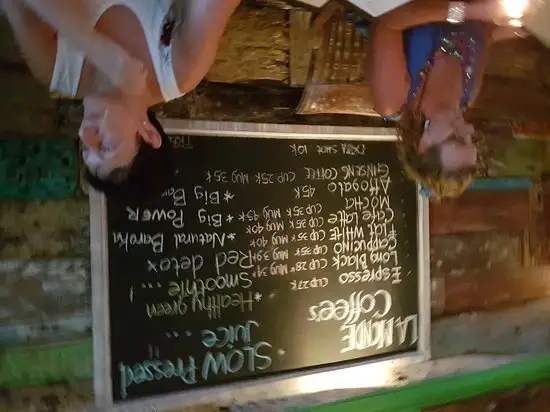 LA MONDE
Coffee's
Espresso CUP 27K
Long black CUP 28K MUG
Cappucino CUP 35K MUG 39K
FLAT WHITE CUP 35K MUG 40K
Cafe Latte CUP 35K MUG 40K
MOCHA CUP 35K MUG 45K
Affogato 45K
GINSENG COFFEE CUP 25K MUG 35K
EXTRA SHOT 10K
SLOW Pressed
Juice ...
* Healthy green
Smoothie ...!
Red detox
* Natural
* Big Power
* Big